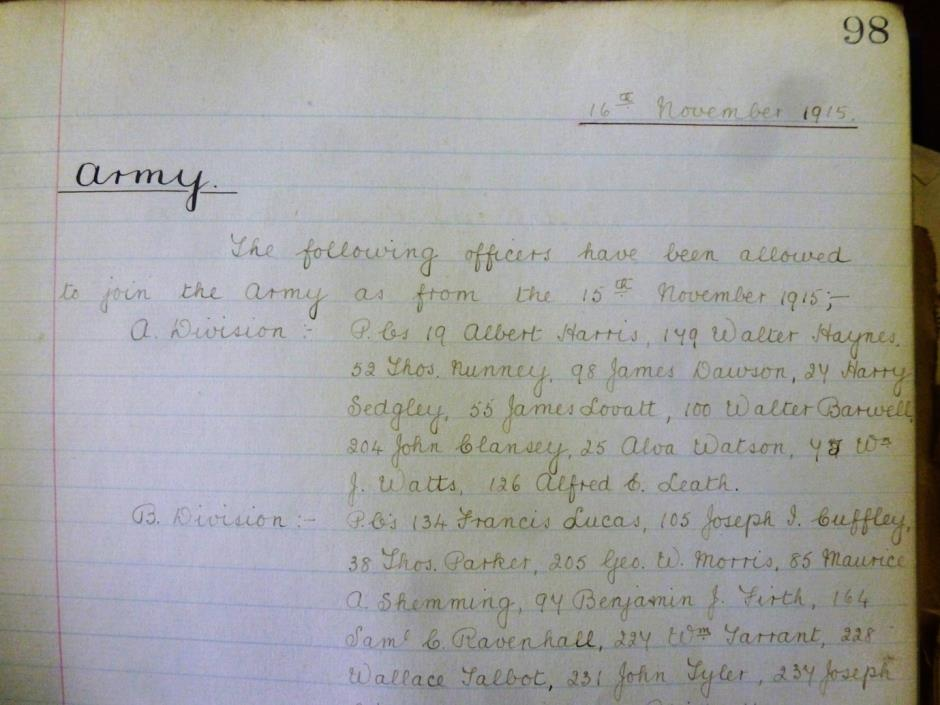 98
16th November 1915.
Army.
The following officers have been allowed
to join the Army as from the 15th November 1915;-
A. Division :- P.Cs 19 Albert Harris, 179 Walter Haynes,
52 Thos. Nunney, 98 James Dawson, 27 Harry
Sedgley, 55 James Lovatt, 100 Walter Barwell,
204 John Clansey, 25 Alva Watson, Wm
J. Watts, 126 Alfred C. Leath.
B. Division :- P.C's 134 Francis Lucas, 105 Joseph I. Cuffley,
38 Thos. Parker, 205 Geo. W. Morris, 85 Maurice
A. Shemming, 97 Benjamin J. Firth, 164
Saml C. Ravenhall, 227 Wm Tarrant, 228
Wallace Talbot, 231 John Tyler, 237 Joseph